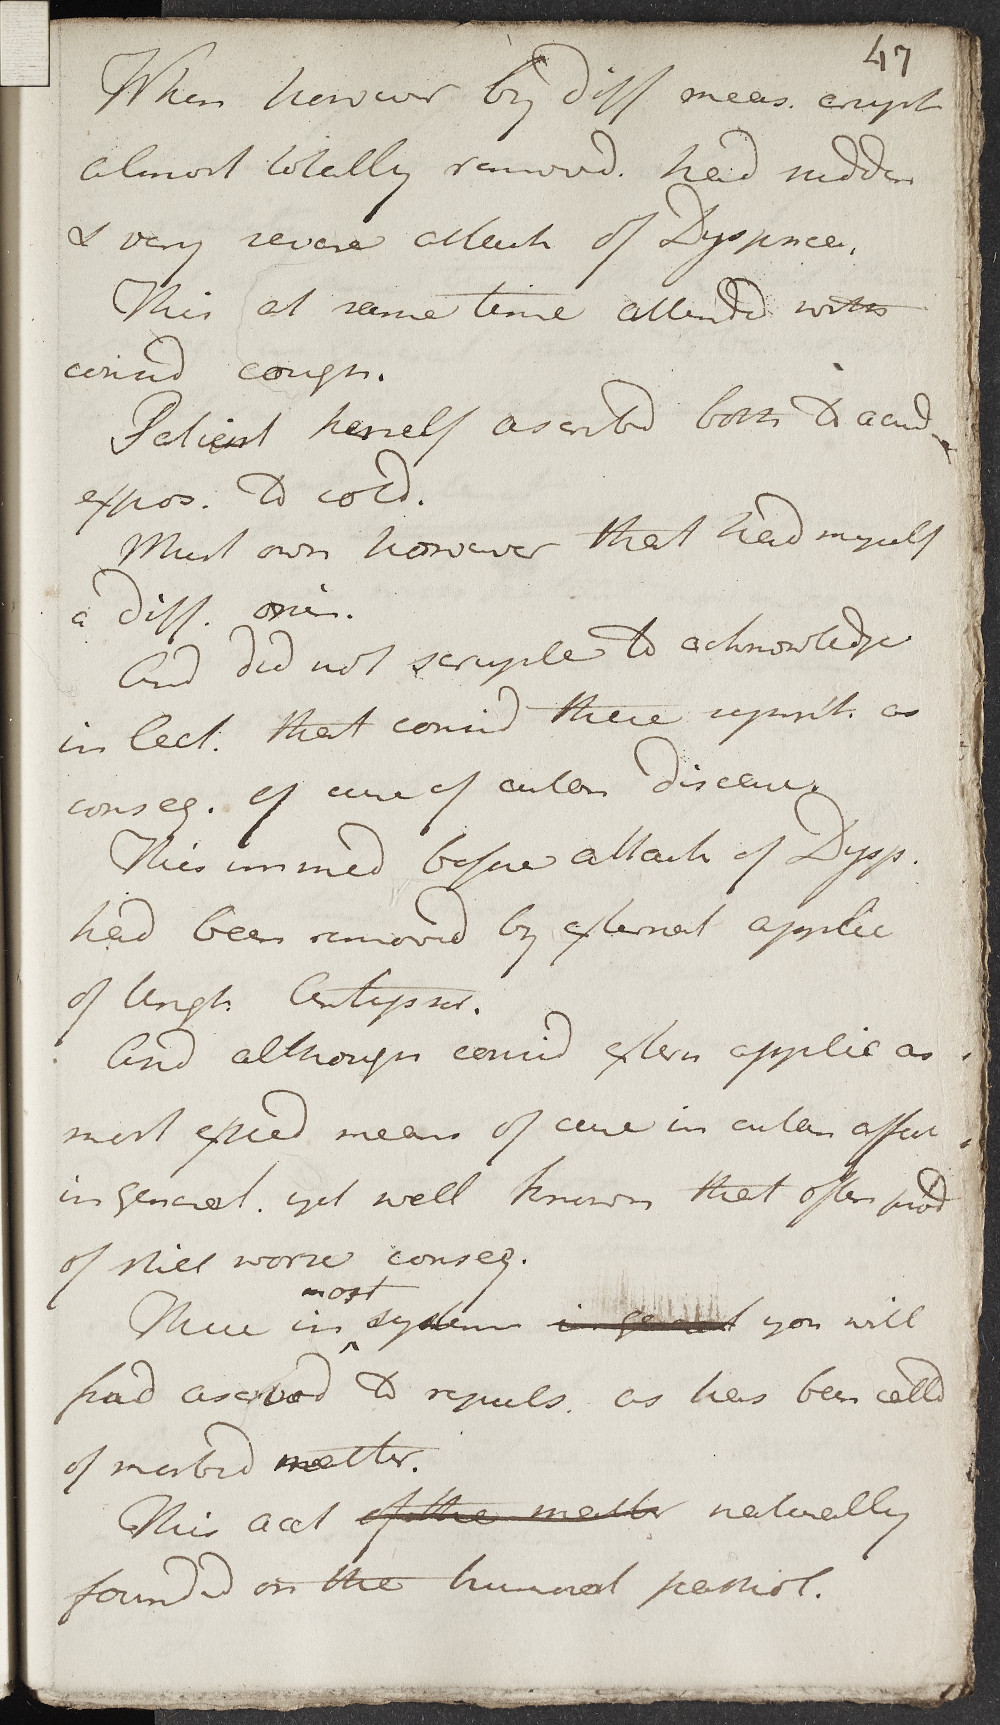 47
When however by diff meas. erupt
almost totally removd. had sudden
& very severe attack of Dyspnea.
This at same time attendd with
consid cough.
Patient herself ascribd both to accid
expos. to cold.
Must own however that had myself
a diff. opin.
And did not scruple to acknowledge
in lect. that consid these symt. as
conseq. of cure of cutan disease.
This immed before attack of Dysp.
had been removd by external applic
of Ungt. Antipsor.
And although consid extern applic as
most exped means of cure in cutan affect
in general. yet well known that often prod
of still worse conseq.
These in most systems in general you will
find ascribd to repuls. as has been calld
of morbid matter.
This acct of the matter naturally
founded on the humoral pathol.